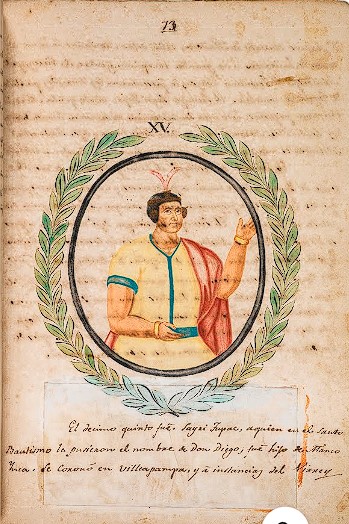 73
XV.
El decimo quinto fué. Sayri Tupac, aquien en el Santo
Bautismo le pusieron el nombre de Don Diego, fué hijo de Manco
Ynca. Se Coronó en Villcapampa, y á instancias del Virrey